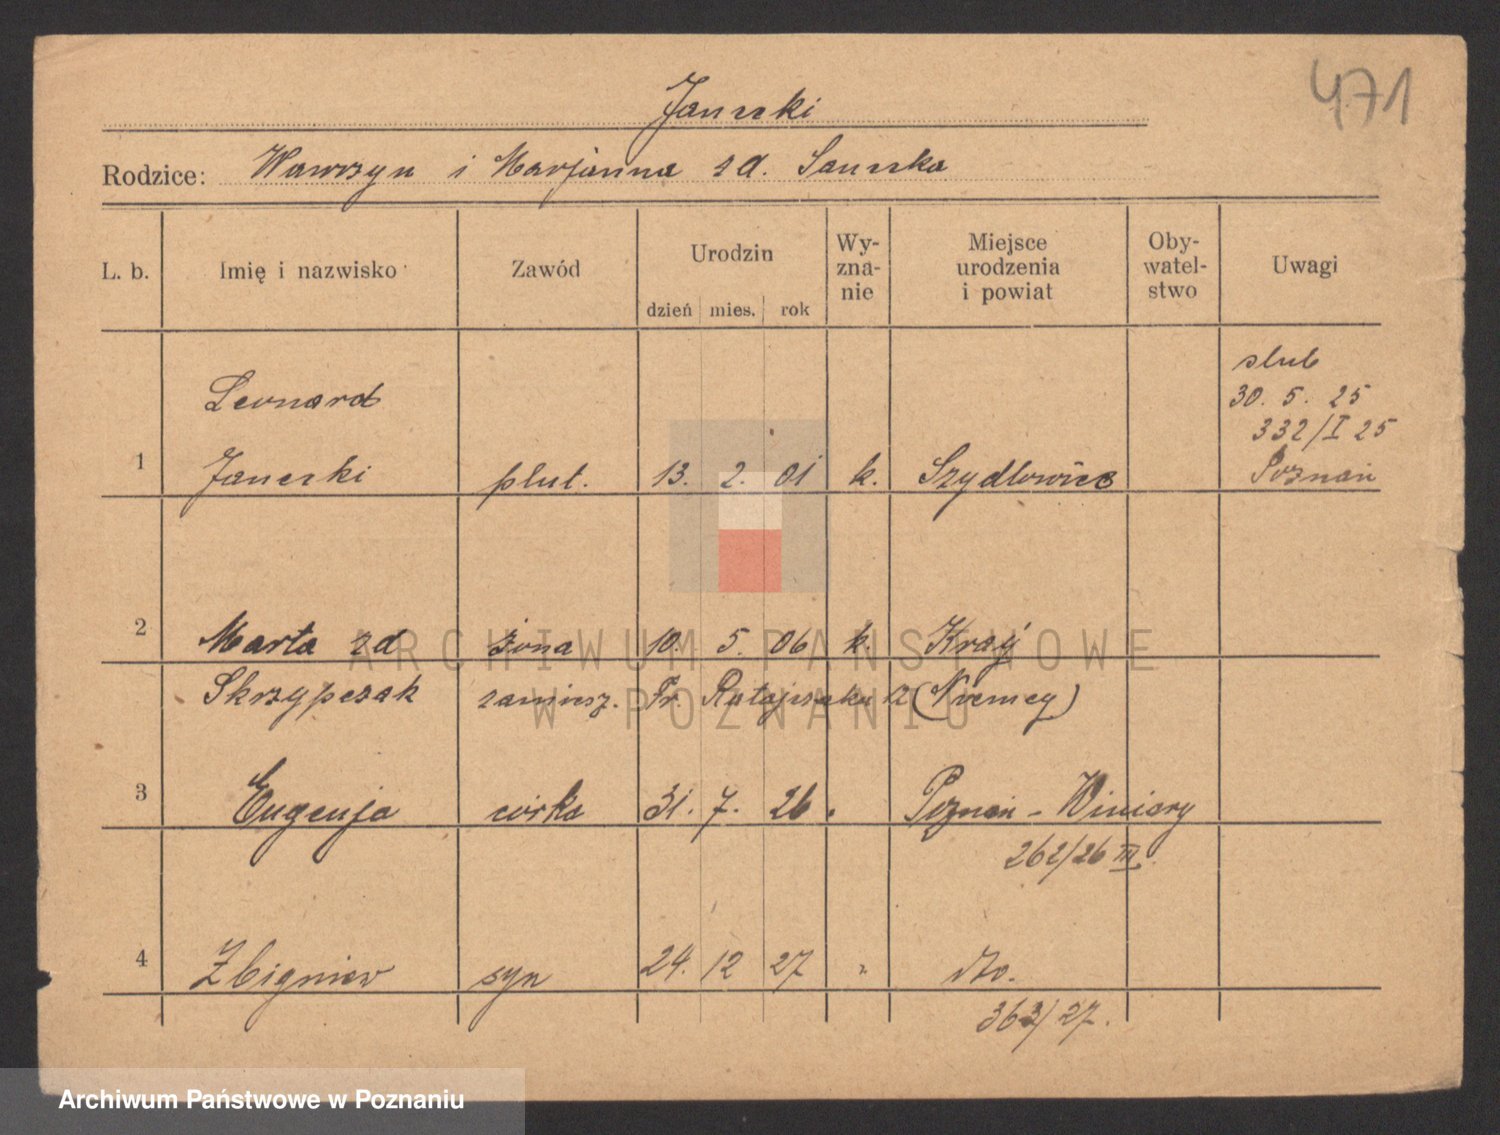 471
Janeski
Rodzice: Wawrzyn i Marjanna zd.
L. b. Imię i nazwisko Zawód Urodzin dzień mies. rok Wy-zna-nie Miejsce urodzenia i powiat Oby-watel-stwo Uwagi
slub
Leonard 30. 5. 25
332/I 25
1 Janeski plut. 13. 2. 01 k. Szydłowiec Poznań
2 Marta zd żona 10. 5. 06 k. Kraj
Skrzypczak zamiesz. Fr. Ratajczaka 12 (Niemcy)
3 Eugenja córka 31. 7. 26 Poznań - Winiary
262/26 III.
4 Zbigniew syn 24. 12 27 " dto.
363/27.
ARCHIWUM PAŃSTWOWE
W POZNANIU
Archiwum Państwowe w Poznaniu